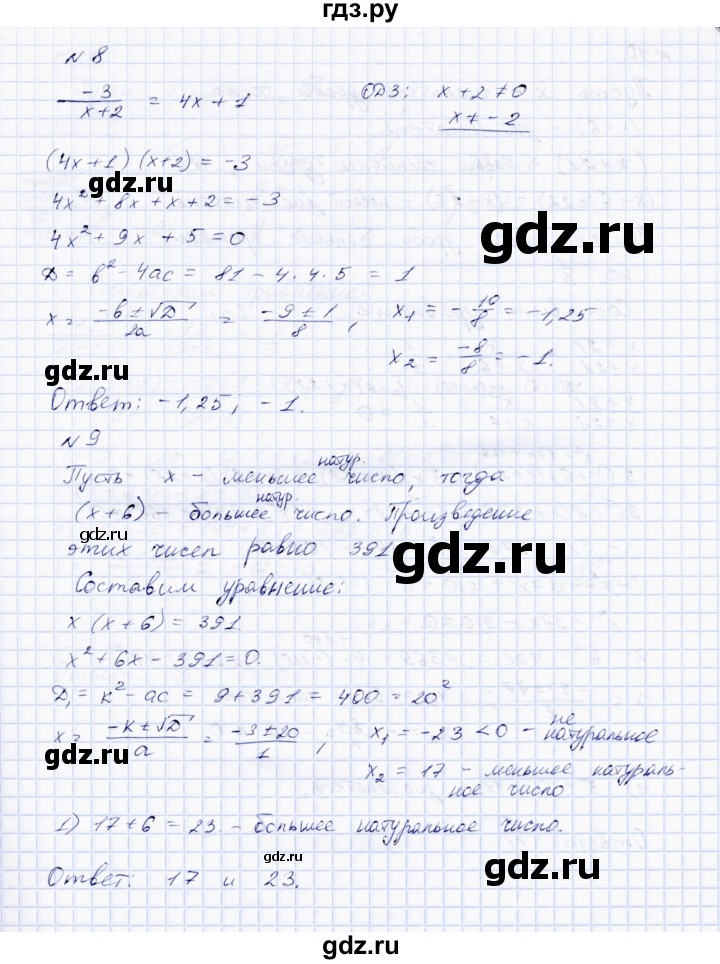 гдз.ру
№ 8
-3/(x+2) = 4x+1   ОДЗ: x+2≠0
x≠-2
(4x+1)(x+2) = -3
gdz.ru
4x²+8x+x+2=-3
gdz.ru
4x²+9x+5=0
D = b²-4ac = 81-4·4·5 = 1
x = (-b±√D)/2a = (-9±1)/8, x₁ = -10/8 = -1,25
x₂ = -8/8 = -1.
gdz.ru
Ответ: -1,25; -1.
№ 9
Пусть x - меньшее натур. число, тогда
(x+6) - большее натур. число. Произведение
gdz.ru
этих чисел равно 391
gdz.ru
Составим уравнение:
x(x+6) = 391.
x²+6x-391=0.
D₁ = k²-ac = 9+391 = 400 = 20²
x = (-k±√D)/a = (-3±20)/1, x₁ = -23 < 0 - не натуральное
gdz.ru
x₂ = 17 - меньшее натураль-
ное число
1) 17+6 = 23 - большее натуральное число.
gdz.ru
gdz.ru
Ответ: 17 и 23.
gdz.ru